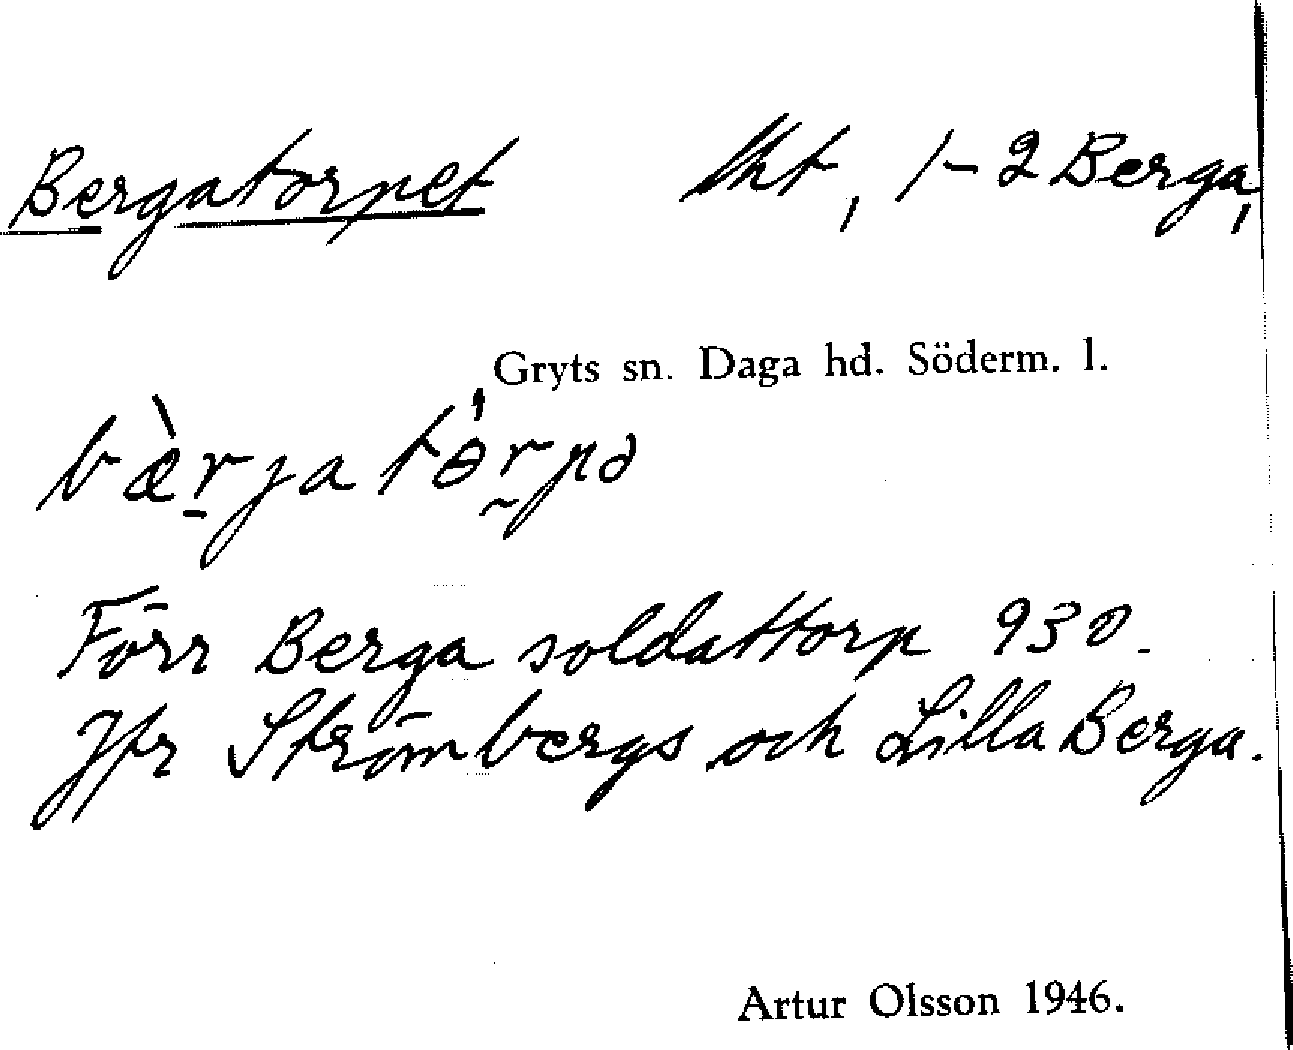 Bergatorpet lht, 1-2 Berga,
Gryts sn. Daga hd. Söderm. l.
bæ̀r̠jatɵ́r̰pə
Förr Berga soldattorp 930.
Jfr Strömbergs och Lilla Berga.
Artur Olsson 1946.